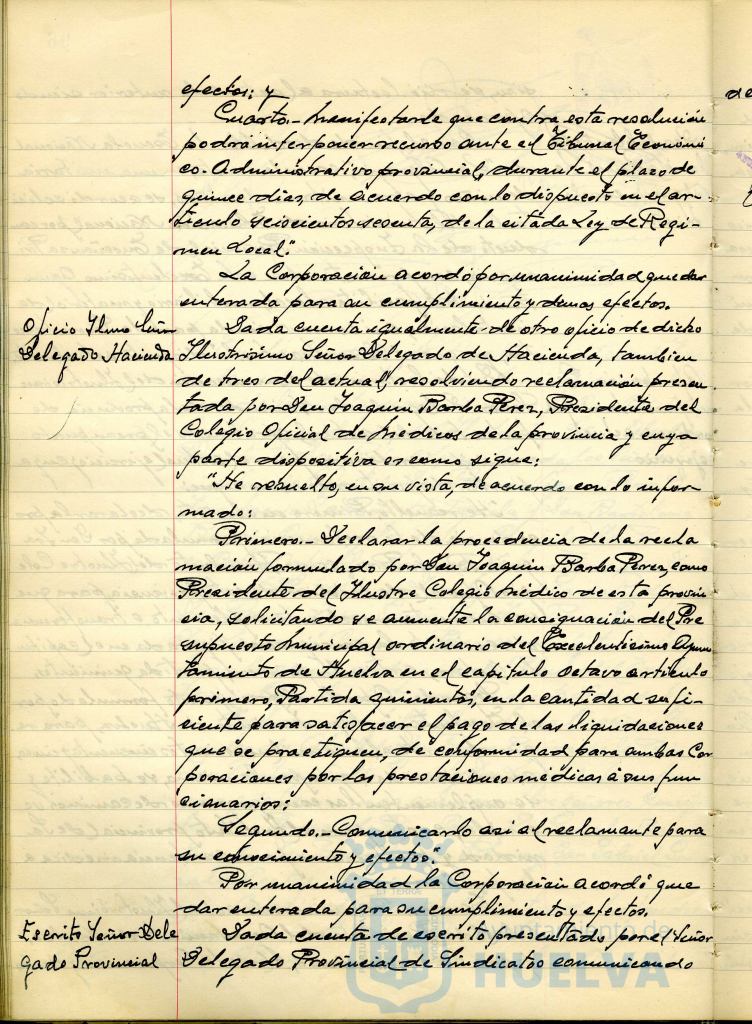 efectos; y
Cuarto.- Manifestarle que contra esta resolución
podrá interponer recurso ante el Tribunal Económi
co-Administrativo provincial, durante el plazo de
quince dias, de acuerdo con lo dispuesto en el ar-
tículo seiscientos sesenta, de la citada Ley de Regi-
men Local".
La Corporación acordó por unanimidad quedar
enterada para su cumplimiento y demas efectos.
Oficio Ilmo Señor
Delegado Hacienda
Dada cuenta igualmente de otro oficio de dicho
Ilustrisimo Señor Delegado de Hacienda, tambien
de tres del actual, resolviendo reclamación presen-
tada por Don Joaquin Barba Perez, Presidente del
Colegio Oficial de Médicos de la provincia y cuya
parte dispositiva es como sigue:
"He resuelto, en su vista, de acuerdo con lo infor-
mado:
Primero.- Declarar la procedencia de la recla
mación formulado por Don Joaquin Barba Perez, como
Presidente del Ilustre Colegio Médico de esta provin
cia, solicitando se aumente la consignación del Pre
supuesto Municipal ordinario del Excelentisimo Ayun
tamiento de Huelva en el capítulo octavo artículo
primero, Partida quinientos, en la cantidad sufi-
ciente para satisfacer el pago de las liquidaciones
que se practiquen, de conformidad para ambas Cor
poraciones por las prestaciones médicas á sus fun
cionarios:
Segundo.- Comunicarlo asi al reclamante para
su conocimiento y efectos".
Por unanimidad la Corporación acordó que
dar enterada para su cumplimiento y efectos.
Escrito Señor Dele
gado Provincial
Dada cuenta de escrito presentado por el Señor
Delegado Provincial de Sindicatos comunicando
Ayuntamiento de
HUELVA
de